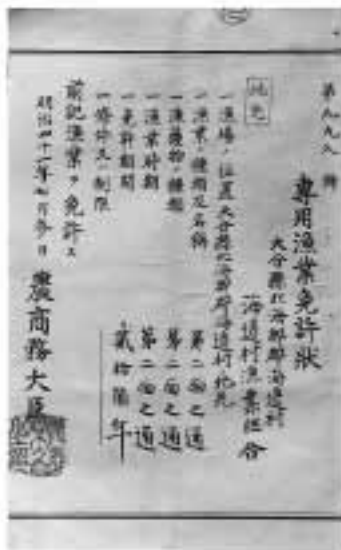 第八九八號
專用漁業免許狀
大分縣北海部郡海邊村
海邊村漁業組合
地先
一漁場ノ位置大分縣北海部郡海邊村地先
一漁業ノ種類及名稱 第二面之通
一漁獲物ノ種類 第二面之通
一漁業時期 第二面之通
一免許期間 貳拾箇年
一條件又ハ制限
前記漁業ヲ免許ス
明治四十一年七月
農商務大臣